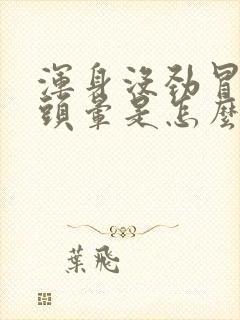 渾身沒勁冒
頭暈是怎麼
葉飛